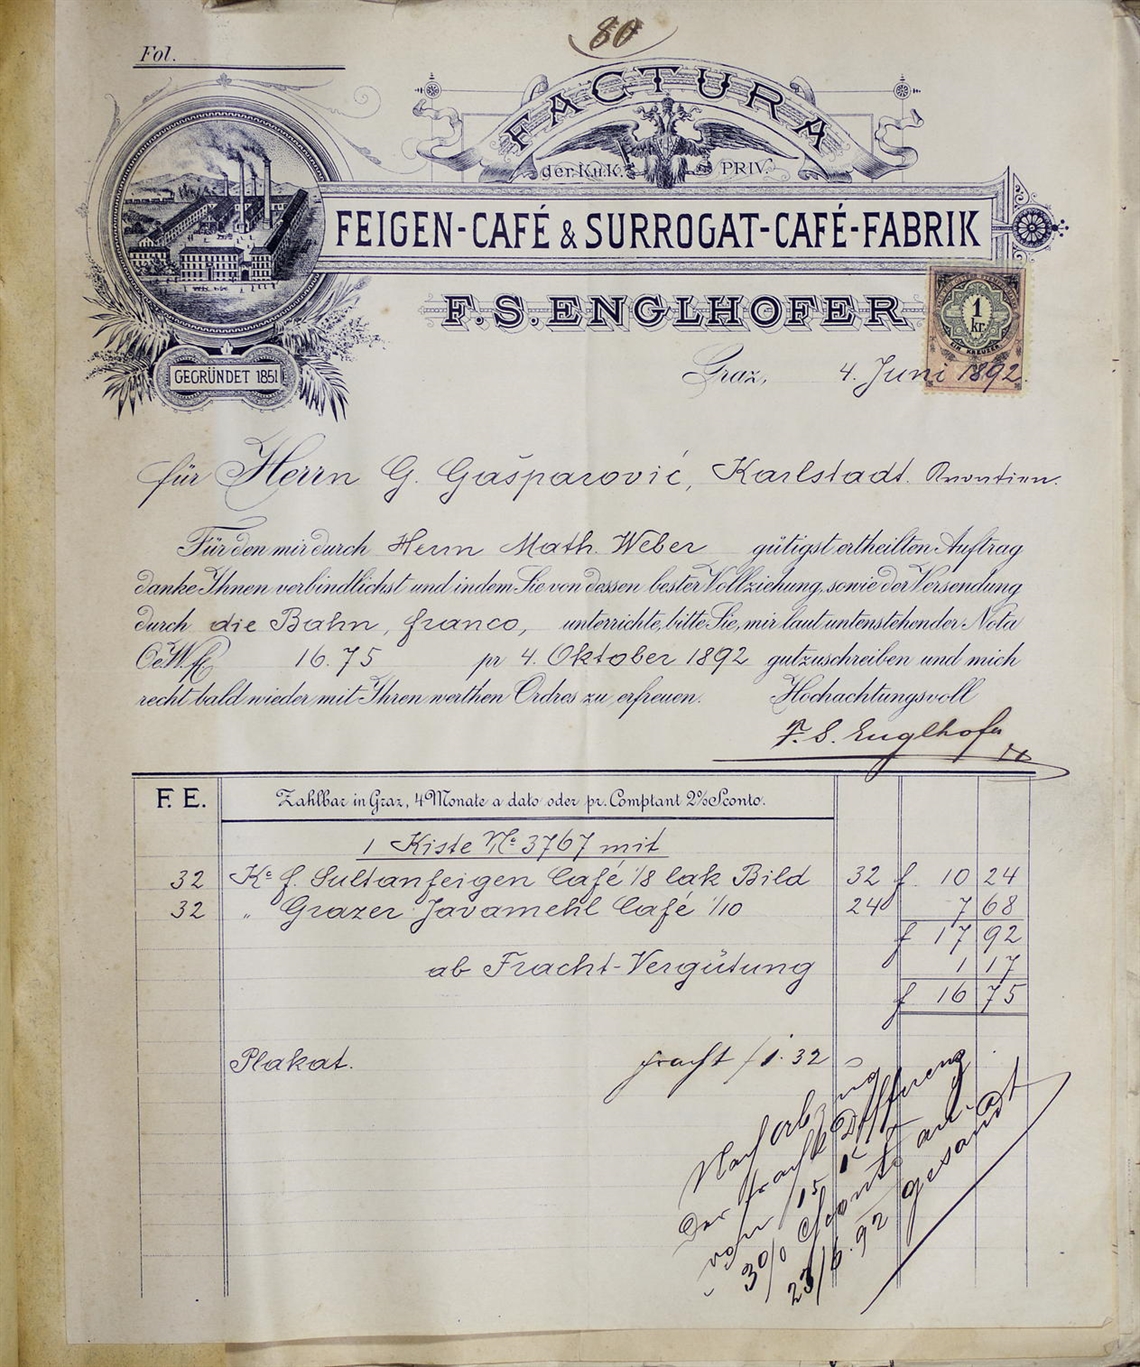 80
Fol.
FACTURA
der K.u.K. PRIV.
FEIGEN-CAFÉ & SURROGAT-CAFÉ-FABRIK
F. S. ENGLHOFER
1
kr.
EIN KREUZER
GEGRÜNDET 1851
Graz, 4. Juni 1892.
für Herrn G. Gašparović, Karlstadt. Kroatien.
Für den mir durch Herrn Math. Weber gütigst ertheilten Auftrag
danke Ihnen verbindlichst und indem Sie von dessen bester Vollziehung, sowie der Versendung
durch die Bahn, franco, unterrichte, bitte Sie, mir laut untenstehender Nota
Oe.W. fl. 16.75 pr 4. Oktober 1892 gutzuschreiben und mich
recht bald wieder mit Ihren werthen Ordres zu erfreuen. Hochachtungsvoll
F. S. Englhofer
F. E. Zahlbar in Graz, 4 Monate a dato oder pr. Comptant 2% Sconto.
1 Kiste No. 3767 mit
32 Ko f. Sultanfeigen Café 1/8 lak Bild 32 f 10 24
32 " Grazer Javamehl Café 1/10 24 7 68
f 17 92
ab Fracht-Vergütung 1 17
f 16 75
Plakat. fracht f 1.32
Nach
der fracht Differenz
von 15
3% Sconto
23/6.92 gesandt